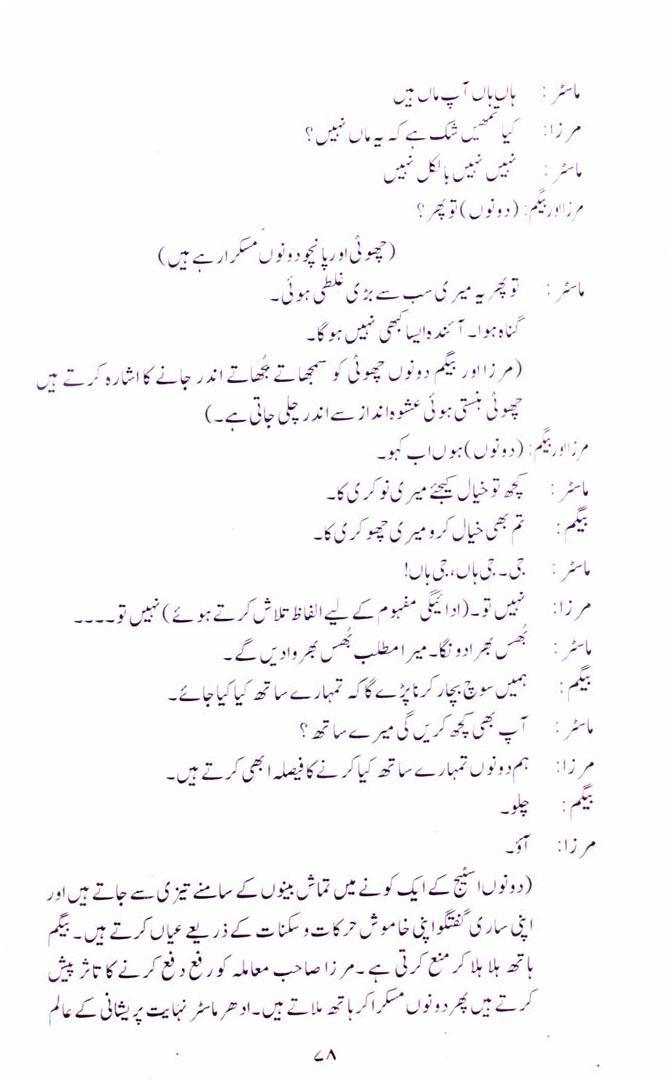 ماسٹر : ہاں ہاں آپ ماں ہیں
مرزا: کیا تمھیں شک ہے کہ یہ ماں نہیں؟
ماسٹر : نہیں نہیں بالکل نہیں
مرزا اور بیگم: (دونوں) تو پھر؟
(چھوٹی اور پانچو دونوں مسکرا رہے ہیں)
ماسٹر : تو پھر یہ میری سب سے بڑی غلطی ہوئی۔
گناہ ہوا۔ آئندہ ایسا کبھی نہیں ہو گا۔
(مرزا اور بیگم دونوں چھوٹی کو سمجھاتے بجھاتے اندر جانے کا اشارہ کرتے ہیں
چھوٹی ہنستی ہوئی عشوہ انداز سے اندر چلی جاتی ہے۔)
مرزا اور بیگم: (دونوں) ہوں اب کہو۔
ماسٹر : کچھ تو خیال کیجئے میری نوکری کا۔
بیگم : تم بھی خیال کرو میری چھوکری کا۔
ماسٹر : جی۔ جی ہاں، جی ہاں!
مرزا: نہیں تو۔ (ادائیگی مفہوم کے لیے الفاظ تلاش کرتے ہوئے) نہیں تو۔۔۔۔
ماسٹر : بھُس بھرا دونگا۔ میرا مطلب بھُس بھروا دیں گے۔
بیگم : ہمیں سوچ بچار کرنا پڑے گا کہ تمہارے ساتھ کیا کیا جائے۔
ماسٹر : آپ بھی کچھ کریں گی میرے ساتھ؟
مرزا: ہم دونوں تمہارے ساتھ کیا کرنے کا فیصلہ ابھی کرتے ہیں۔
بیگم : چلو۔
مرزا: آؤ۔
(دونوں اسٹیج کے ایک کونے میں تماش بینوں کے سامنے تیزی سے جاتے ہیں اور
اپنی ساری گفتگو اپنی خاموش حرکات و سکنات کے ذریعے عیاں کرتے ہیں۔ بیگم
ہاتھ ہلا ہلا کر منع کرتی ہے۔ مرزا صاحب معاملہ کو رفع دفع کرنے کا تاثر پیش
کرتے ہیں پھر دونوں مسکرا کر ہاتھ ملاتے ہیں۔ ادھر ماسٹر نہایت پریشانی کے عالم
۷۸